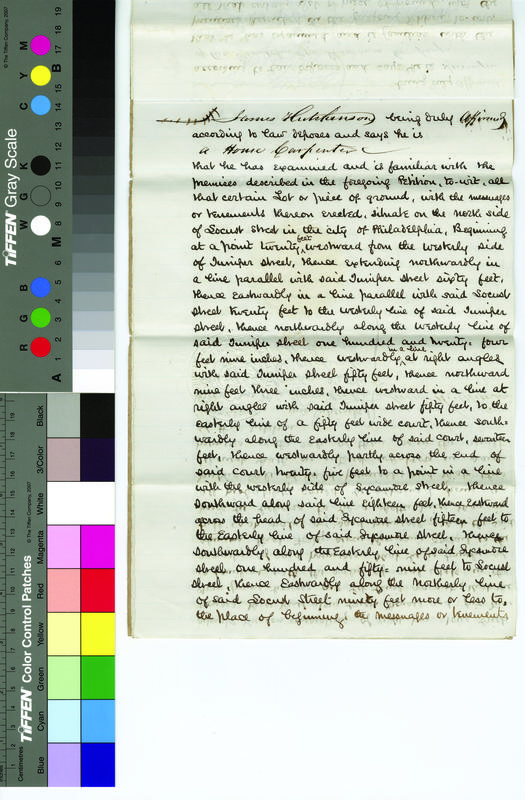 James Hutchinson being duly Affirmed
according to law deposes and says he is
a House Carpenter
that he has examined and is familiar with the
premises described in the foregoing Petition, to-wit, all
that certain Lot or piece of ground, with the messuages
or tenements thereon erected, situate on the north side
of Locust Street in the city of Philadelphia, Beginning
at a point twenty feet westward from the westerly side
of Juniper Street, thence extending northwardly in
a line parallel with said Juniper Street sixty feet,
thence eastwardly in a line parallel with said Locust
Street twenty feet to the westerly line of said Juniper
Street, thence northwardly along the westerly line of
said Juniper Street one hundred and twenty-four
feet nine inches, thence westwardly in a line at right angles
with said Juniper street fifty feet, thence northward
nine feet three inches, thence westward in a line at
right angles with said Juniper street fifty feet, to the
easterly line of a fifty feet wide court, thence south-
wardly along the Easterly line of said court, seventeen
feet, thence westwardly partly across the end of
said court twenty-five feet to a point in a line
with the westerly side of Sycamore Street, thence
Southward along said line eighteen feet, thence Eastward
across the head of said Sycamore street fifteen feet to
the Easterly line of said Sycamore Street, thence
Southwardly along the Easterly line of said Sycamore
street, one hundred and fifty-nine feet to Locust
Street, thence Eastwardly along the Northerly line
of said Locust Street ninety feet more or less to
the place of beginning, the messuages or tenements
TIFFEN Gray Scale
© The Tiffen Company, 2007
R G B W G K C Y M
A 1 2 3 4 5 6 M 8 9 10 11 12 13 14 15 B 17 18 19
TIFFEN Color Control Patches
© The Tiffen Company, 2007
Centimetres
Blue Cyan Green Yellow Red Magenta White 3/Color Black